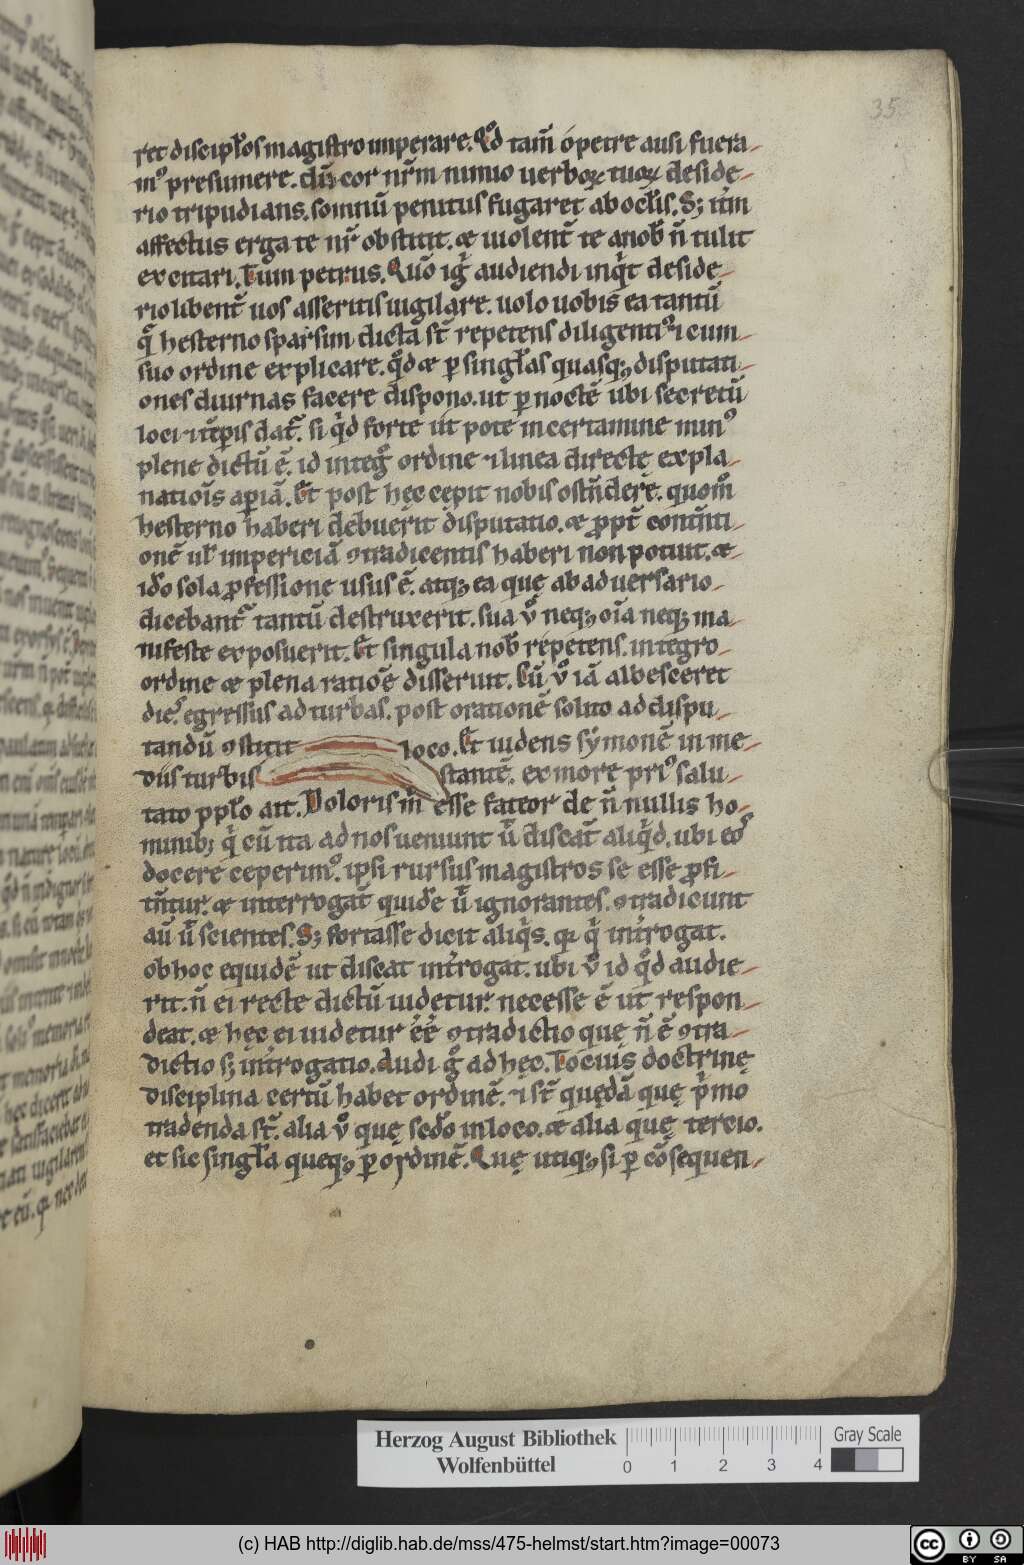 35
ret discipl̄os magistro imperare. Qd̊ tam̄ o petre ausi fuera-
mꝰ presumere. dū cor nr̄m nimio uerboꝝ tuoꝝ deside-
rio tripudians. somnū penitus fugaret ab oclīs. S; itī̄m
affectus erga te nr̄ obstitit. æ uiolent̄ te a nob̄ n̄ tulit
excitari. Tum petrus. Quō ig̊ audiendi inqͥt deside-
rio libent̄ uos asseritis uigilare. uolo uobis ea tantū
q̄ hesterno sparsim dicta st̄ repetens diligentiꝰ ⁊ cum
suo ordine explicare. qd̊ æ ꝑ singl̄as quasq; disputati-
ones diurnas facere dispono. ut ꝑ noctē ubi secretū
loci ⁊ tēꝑis dat̄. si qͥd forte ut pote in certamine minꝰ
plene dictū ē. id integͦ ordine ⁊ linea directe expla-
natiōis aꝑiā. Et post hęc cepit nobis ostn̄dere. quom̊
hesterno haberi debuerit disputatio. æ ꝓpt̄ contn̄ti-
onē ul̄ impericiā ꝯtradicentis haberi non potuit. æ-
idō sola ꝓfessione usus ē. atq; ea quę ab aduersario-
dicebant̄ tantū destruxerit. sua v̊ neq; oīa neq; ma-
nifeste exposuerit. Et singula nob̄ repetens. integro-
ordine æ plena ratiōe disseruit. Cū v̊ iā albesceret
dieſ. egressus ad turbas. post orationē solito ad dispu-
tandū ꝯstitit loco. Et uidens symonē in me-
diis turbis stantē. ex more priꝰ salu-
tato ppl̄o ait. Doloris m̄ esse fateor de n̄nullis ho-
minib; qͥ cū ita ad nos ueniunt ū discat̄ aliqͥd. ubi eoſ
docere ceperimꝰ. ipsi rursus magistros se esse ꝓfi-
tn̄tur. æ interrogat̄ quidē ū ignorantes. ꝯtradicunt
aū ū scientes. S; fortasse dicit aliqͥs. qꝛ qͥ int̄rogat.
ob hoc equidē ut discat int̄rogat. ubi v̊ id qd̊ audie-
rit. n̄ ei recte dictū uidetur. necesse ē ut respon-
deat. æ hęc ei uidetur ēē ꝯtradictio quę n̄ ē ꝯtra-
dictio s; int̄rogatio. Audi g̊ ad hęc. Tocius doctrinę
disciplina certū habet ordinē. ⁊ st̄ quędā quę pͥmo
tradenda st̄. alia v̊ quę secdō in loco. æ alia quę tercio.
et sic singl̄a queq; ꝑ ordinē. Quę utiq; si ꝑ cōsequen-
Herzog August Bibliothek
Wolfenbüttel
0 1 2 3 4
Gray Scale
(c) HAB http://diglib.hab.de/mss/475-helmst/start.htm?image=00073
cc BY SA